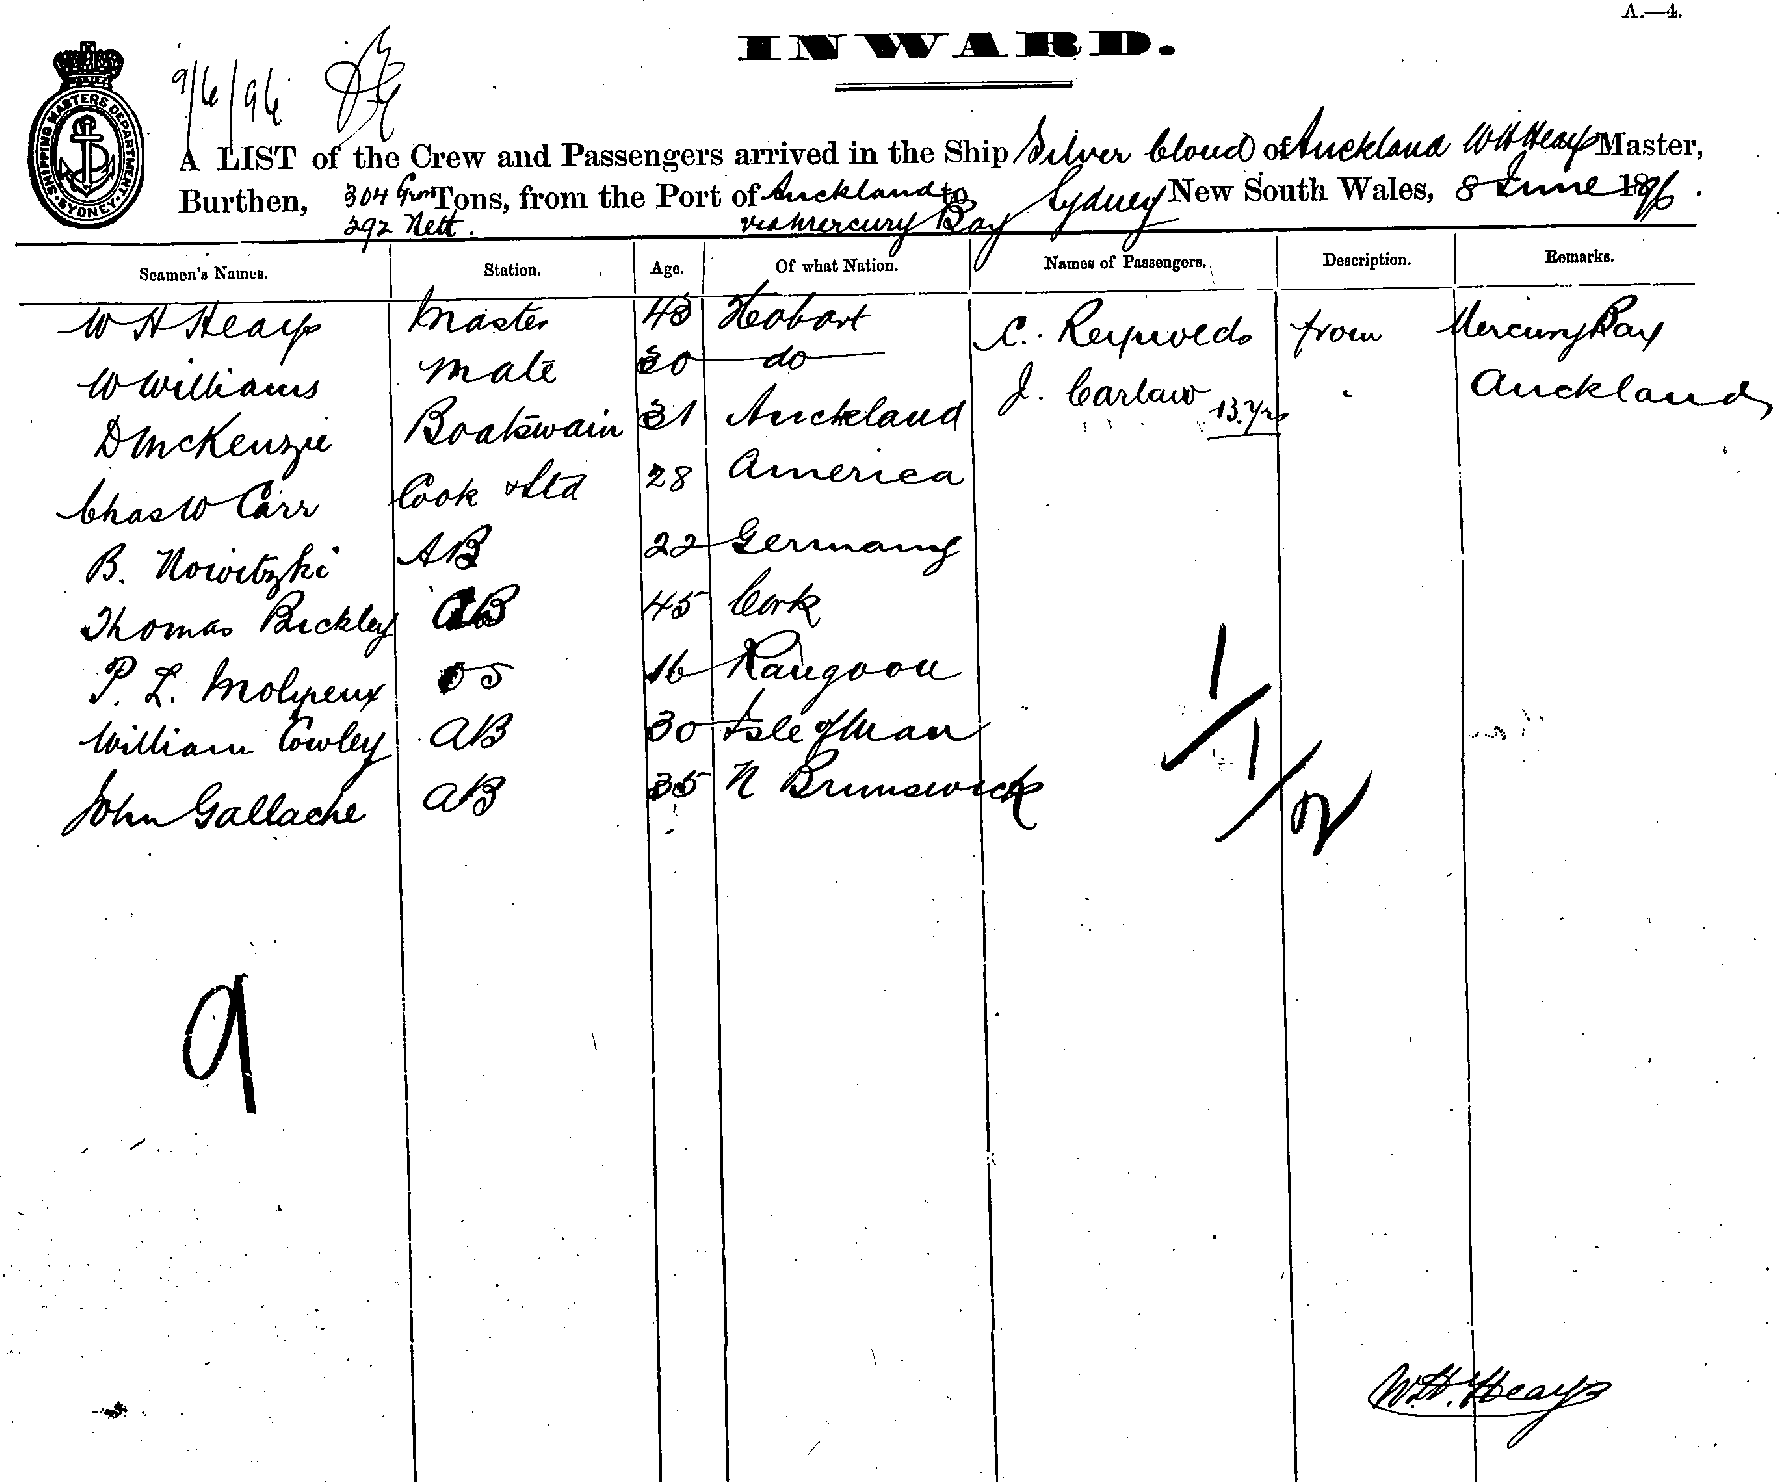 A.—4.
INWARD.
SHIPPING MASTERS DEPARTMENT SYDNEY
9/6/96
A LIST of the Crew and Passengers arrived in the Ship Silver Cloud of Auckland W H Heays Master,
Burthen, 304 Grs Tons, from the Port of Auckland to Sydney New South Wales, 8 June 1896.
292 Nett. via Mercury Bay
Seamen's Names. Station. Age. Of what Nation. Names of Passengers. Description. Remarks.
W H Heays Master 43 Hobart C. Reynolds from Mercury Bay
W Williams Mate 30 do J. Carlaw 13 yrs " Auckland
D McKenzie Boatswain 31 Auckland
Chas W Carr Cook & Std 28 America
B. Nowitzki AB 22 Germany
Thomas Bickley AB 45 Cork
P. L. Molyneux OS 16 Rangoon
William Cowley AB 30 Isle of Man
John Gallache AB 35 N Brunswick
1/1/2
9
W.H. Heays